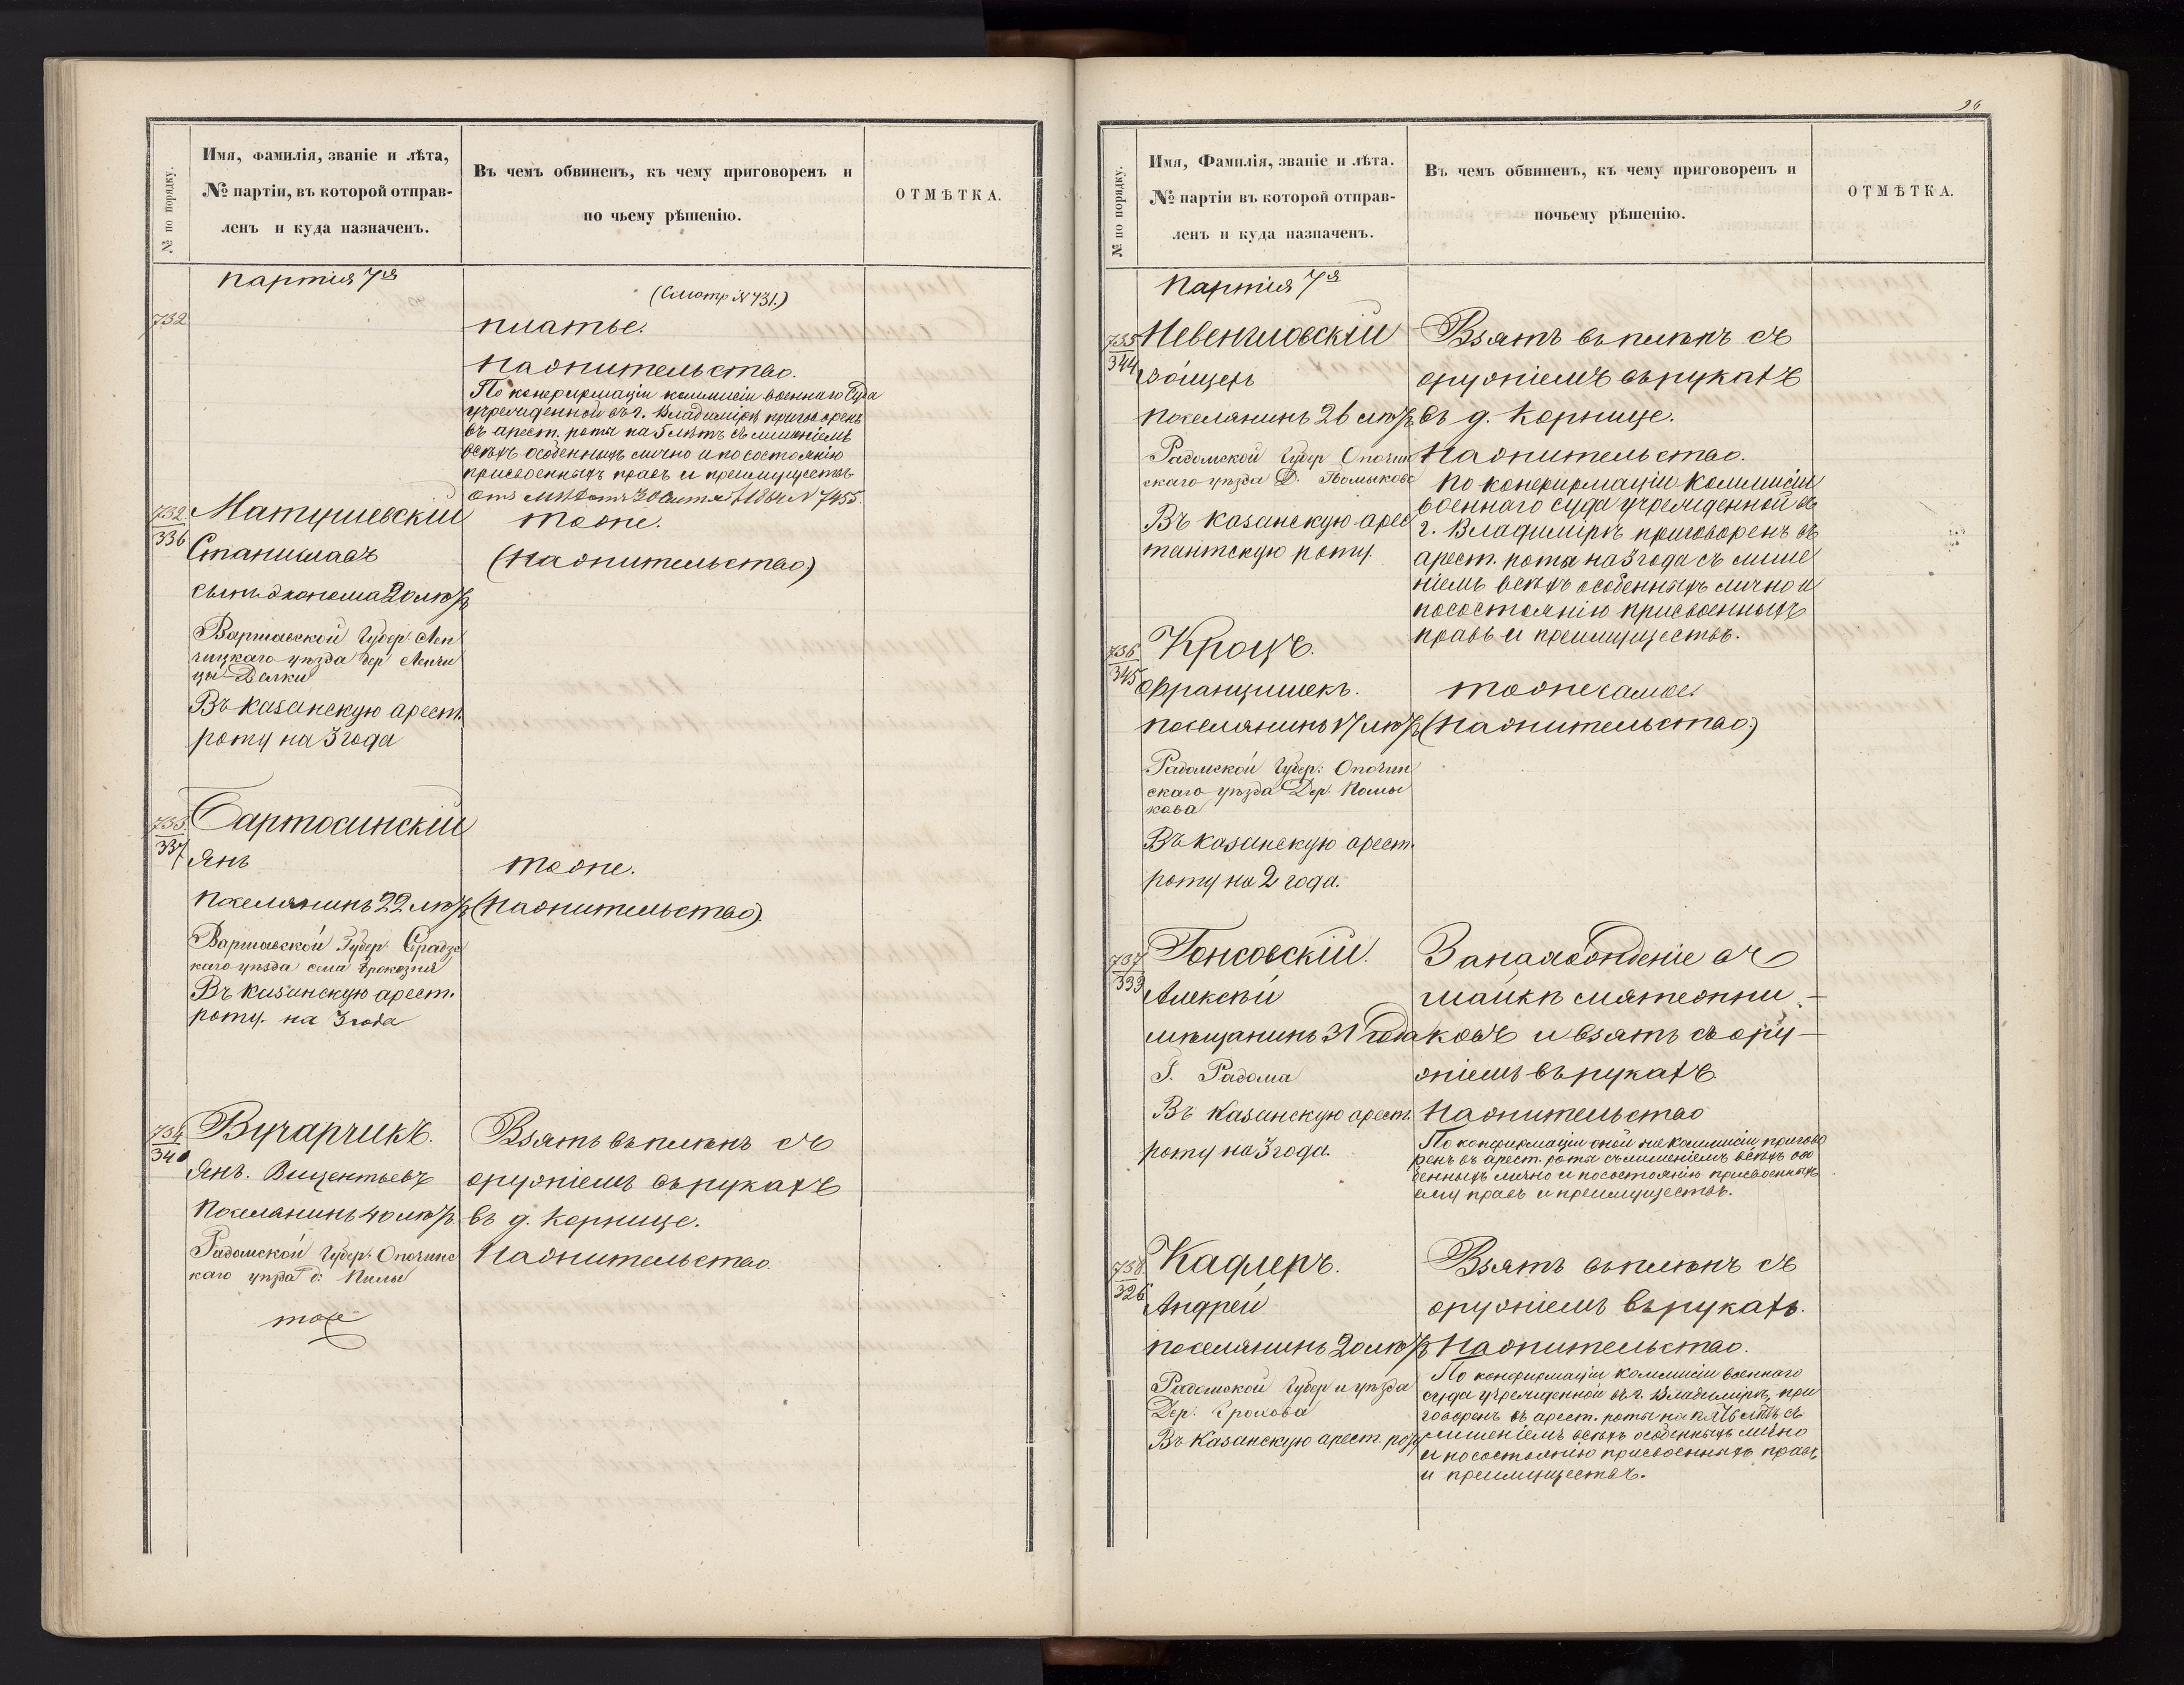 № по порядку.
Имя, Фамилія, званіе и лѣта,
№ партіи, въ которой отправ-
ленъ и куда назначенъ.
Въ чемъ обвиненъ, къ чему приговоренъ и
по чьему рѣшенію.
ОТМѢТКА.
партія 7я
732
(Смотр №731.)
платье.
На жительство.
По конфирмаціи коммисіи военнаго Суда
учрежденной въ г. Владимірѣ приговоренъ
въ арест. роты на 5 лѣтъ съ лишеніемъ
всѣхъ особенныхъ лично и по состоянію
присвоенныхъ правъ и преимуществъ
1864 № 7455.
732
336
Матушевскій
Станиславъ
сынъ эконома 20 лѣтъ
Варшавской Губер. Лен
чицкаго уѣзда дер
Въ казанскую арест.
роту на 3 года
тоже.
(На жительство)
733
337
Бартосинскій
Янъ
поселянинъ 22 лѣтъ
Варшавской Губер. Серадзс
каго уѣзда села
Въ казанскую арест.
роту. на 3 года
тоже.
(На жительство).
734
340
Вучарчикъ.
Янъ. Вицентьевъ
Поселянинъ 40 лѣтъ.
Радомской Губер. Опочинс
каго уѣзда д: Пилы
тоже
Взятъ въ плѣнъ съ
оружіемъ въ рукахъ
въ д. Корнице.
На жительство.
96
№ по порядку.
Имя, Фамилія, званіе и лѣта.
№ партіи въ которой отправ-
ленъ и куда назначенъ.
Въ чемъ обвиненъ, къ чему приговоренъ и
почьему рѣшенію.
ОТМѢТКА.
Партія 7я
735
344
Невенгловскій
Войцехъ
поселянинъ 26 лѣтъ
Радомской Губер Опочин
скаго уѣзда Д.
Въ казанскую арес
тантскую роту.
Взятъ въ плѣнъ съ
оружіемъ въ рукахъ
въ д. Корнице.
На жительство.
По конфирмаціи коммисіи
военнаго суда учрежденной въ
г. Владимірѣ приговоренъ въ
арест. роты на 3 года съ лише
ніемъ всѣхъ особенныхъ лично и
по состоянію присвоенныхъ
правъ и преимуществъ.
736
345
Кроцъ.
Францишекъ.
поселянинъ 17 лѣтъ
Радомской Губер: Опочин
скаго уѣзда Дер. Помы
кова
Въ казанскую арест.
роту на 2 года.
тоже самое.
(На жительство)
737
333
Гонсовскій.
Алексѣй
мѣщанинъ 31 года
Г. Радома
Въ Казанскую арест.
роту на 3 года.
За нахожденіе въ
шайкѣ мятежни-
ковъ и взятъ съ ору-
жіемъ въ рукахъ
На жительство
По конфирмаціи оной же коммисіи пригово
ренъ въ арест. роты съ лишеніемъ всѣхъ осо
бенныхъ лично и по состоянію присвоенныхъ
ему правъ и преимуществъ.
738
326
Кафлеръ.
Андрей
поселянинъ 20 лѣтъ
Радомской Губер и уѣзда
Дер.
Въ Казанскую арест. роту
Взятъ въ плѣнъ съ
оружіемъ въ рукахъ.
На жительство.
По конфирмаціи Коммисіи военнаго
суда учрежденной въ г. Владимірѣ, при
говоренъ въ арест. роты на пять лѣтъ съ
лишеніемъ всѣхъ особенныхъ лично
и по состоянію присвоенныхъ правъ
и преимуществъ.